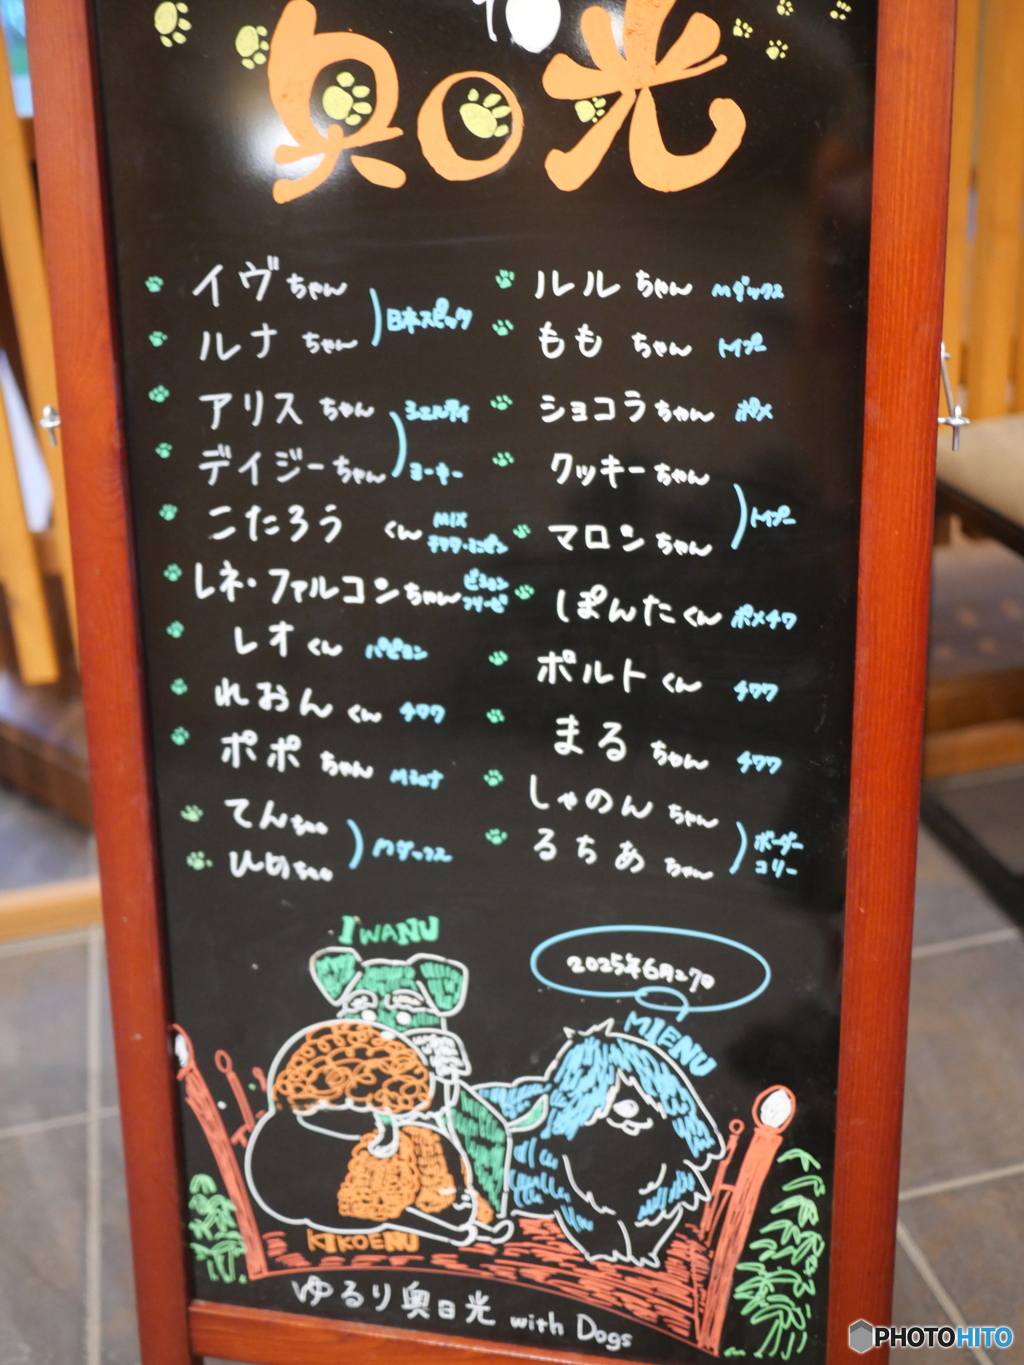 奥日光
イヴちゃん
ルナちゃん
日本スピッツ
アリスちゃん シェルティ
デイジーちゃん ヨーキー
こたろうくん MIX チワワ・ミニピン
レネ・ファルコンちゃん ビションフリーゼ
レオくん パピヨン
れおんくん チワワ
ポポちゃん Mシュナ
てんちゃん
ひめちゃん
Mダックス
ルルちゃん Mダックス
ももちゃん トイプー
ショコラちゃん ポメ
クッキーちゃん
マロンちゃん
トイプー
ぽんたくん ポメチワ
ポルトくん チワワ
まるちゃん チワワ
しゃのんちゃん
るちあちゃん
ボーダーコリー
IWANU
2025年6月27日
MIENU
KIKOENU
ゆるり奥日光 with Dogs
PHOTOHITO